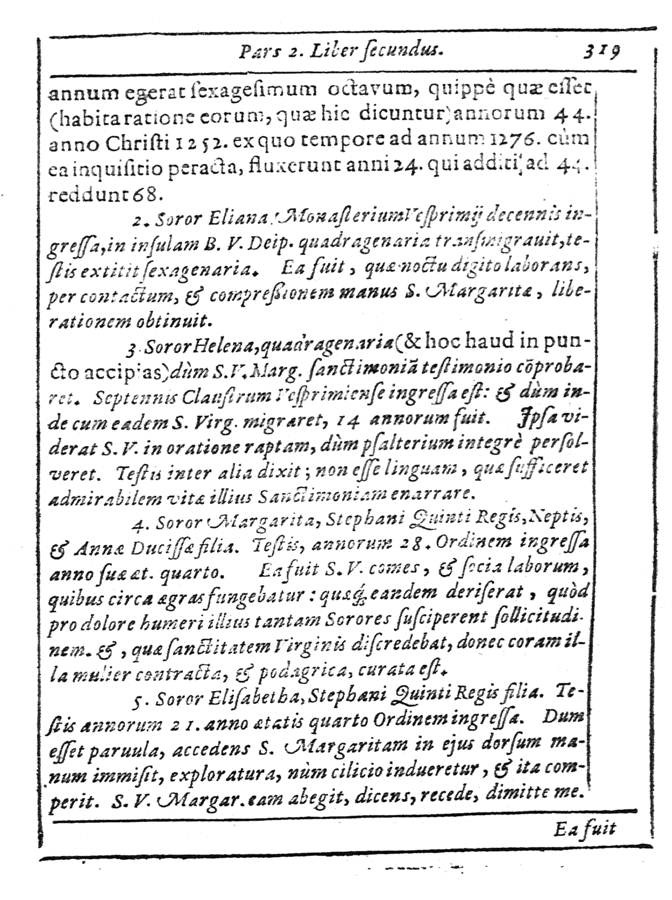 Pars 2. Liber ſecundus. 319
annum egerat ſexageſimum octavum, quippè quæ eſſet
(habita ratione eorum, quæ hic dicuntur) annorum 44.
anno Chriſti 1252. ex quo tempore ad annum 1276. cùm
ea inquiſitio peracta, fluxerunt anni 24. qui additi ad 44.
reddunt 68.
2. Soror Eliana Monaſterium Veſprimij decennis in-
greſſa, in inſulam B. V. Deip. quadragenaria tranſmigrauit, te-
ſtis extitit ſexagenaria. Ea fuit, quæ noctu digito laborans,
per contactum, & compreſſionem manus S. Margaritæ, libe-
rationem obtinuit.
3. Soror Helena, quadragenaria (& hoc haud in pun-
cto accipias) dùm S. V. Marg. ſanctimoniā teſtimonio cōproba-
ret. Septennis Clauſtrum Veſprimienſe ingreſſa eſt: & dùm in-
de cum eadem S. Virg. migraret, 14 annorum fuit. Ipſa vi-
derat S. V. in oratione raptam, dùm pſalterium integrè perſol-
veret. Teſtis inter alia dixit; non eſſe linguam, quæ ſufficeret
admirabilem vitæ illius Sanctimoniam enarrare.
4. Soror Margarita, Stephani Quinti Regis, Neptis,
& Annæ Duciſſæ filia. Teſtis, annorum 28. Ordinem ingreſſa
anno ſuæ æt. quarto. Ea fuit S. V. comes, & ſocia laborum,
quibus circa ægras fungebatur: quæq́; eandem deriſerat, quòd
pro dolore humeri illius tantam Sorores ſuſciperent ſollicitudi-
nem. &, quæ ſanctitatem Virginis diſcredebat, donec coram il-
la mulier contracta, & podagrica, curata eſt.
5. Soror Eliſabetha, Stephani Quinti Regis filia. Te-
ſtis annorum 21. anno ætatis quarto Ordinem ingreſſa. Dum
eſſet paruula, accedens S. Margaritam in ejus dorſum ma-
num immiſit, exploratura, nùm cilicio indueretur, & ita com-
perit. S. V. Margar. eam abegit, dicens, recede, dimitte me.
Ea fuit